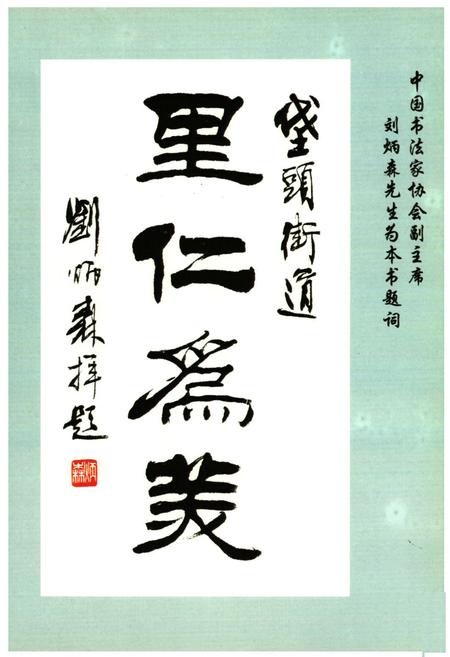 中国书法家协会副主席
刘炳森先生为本书题词
垡頭街道
里仁為美
劉炳森拜題
炳森